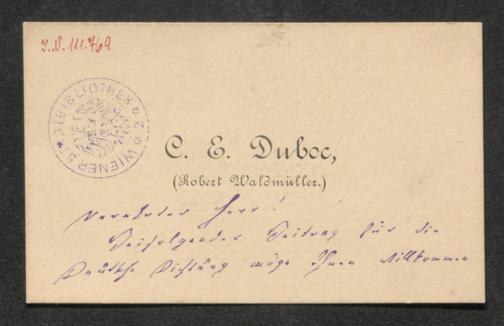 I.N. 111.769
WIENER STADTBIBLIOTHEK
C. E. Duboc,
(Robert Waldmüller.)
Verehrter Herr!
Beifolgender Beitrag für die
Deutsche Dichtung möge Ihnen willkommen